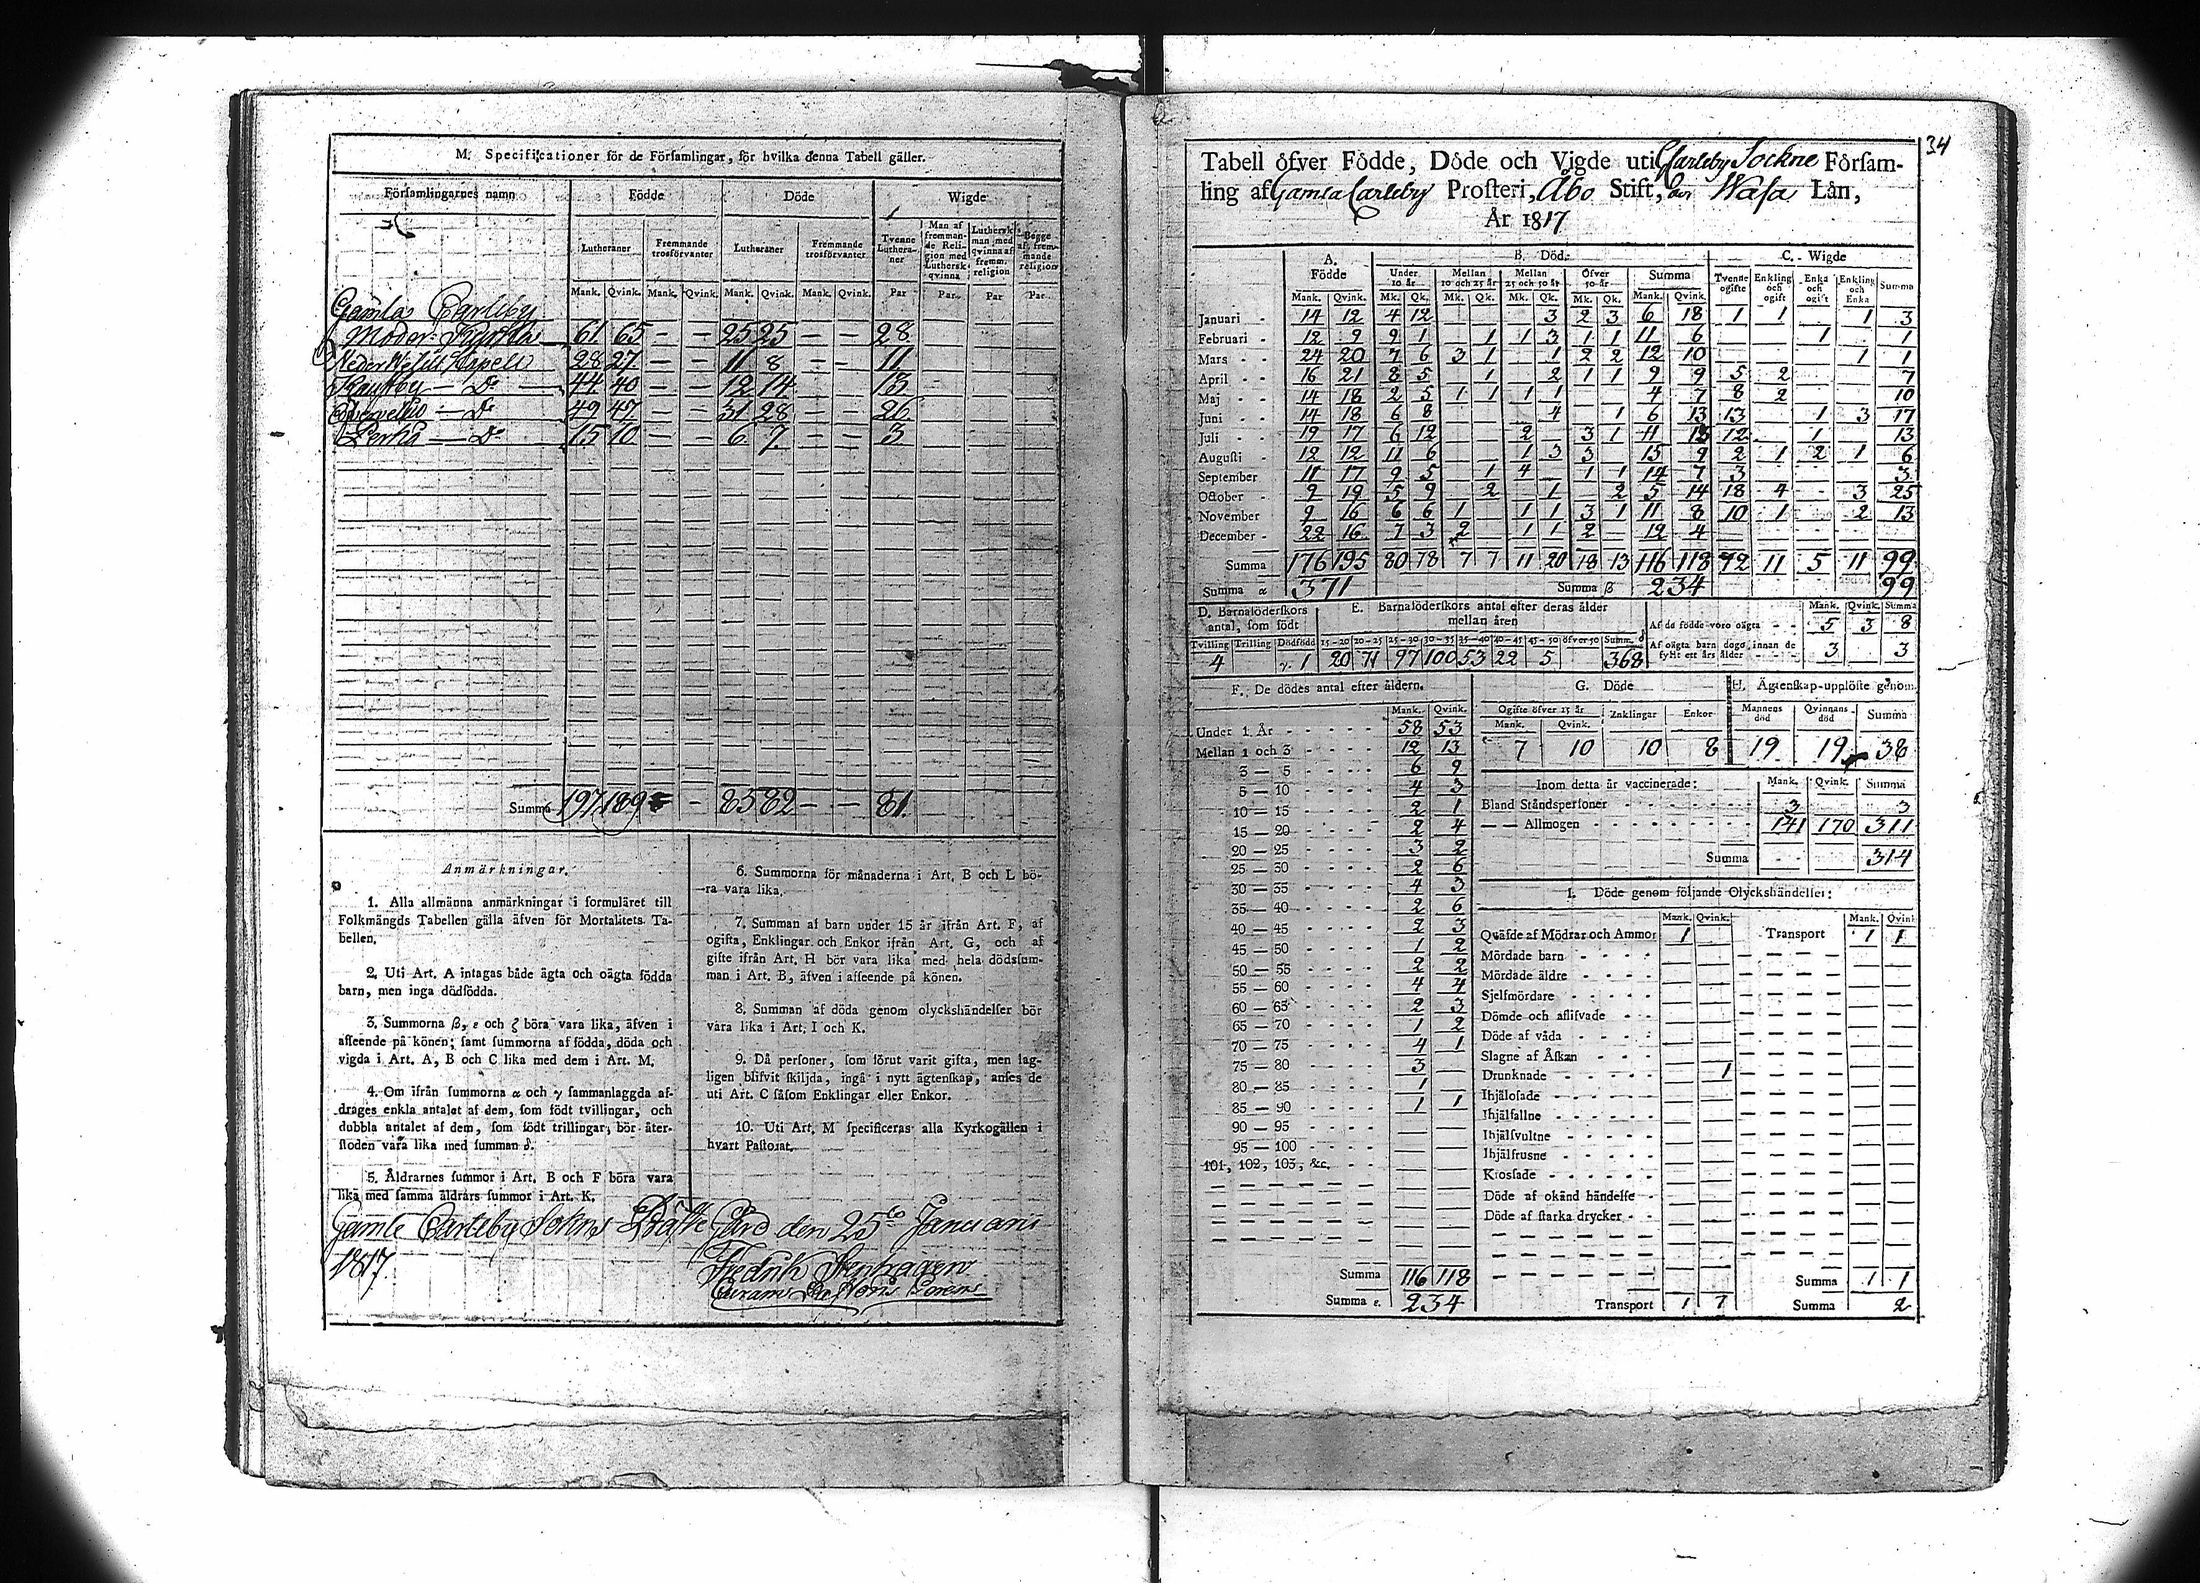 M. Specificationer för de Församlingar, för hvilka denna Tabell gäller.
Församlingarnes namn Födde Döde Wigde
Lutheraner Fremmande trosförvanter Lutheraner Fremmande trosförvanter Tvenne Lutheraner Man af fremmande Religion med Luthersk qvinna Luthersk man med qvinna af fremm. religion Begge af fremmande religion
Mank. Qvink. Mank. Qvink. Mank. Qvink. Mank. Qvink. Par Par Par Par
Gamla Carleby
Moder- 61 65 — — 25 25 — — 28
Neder Capell 28 27 — — 11 8 — — 11
44 40 — — 12 14 — — 13
49 47 — — 31 28 — — 26
15 10 — — 6 7 — — 3
Summa 197 189 — — 85 82 — — 81.
Anmärkningar.
1. Alla allmänna anmärkningar i formuläret till
Folkmängds Tabellen gälla äfven för Mortalitets Ta-
bellen.
2. Uti Art. A intagas både ägta och oägta födda
barn, men inga dödfödda.
3. Summorna β, ε och ζ böra vara lika, äfven i
afseende på könen; samt summorna af födda, döda och
vigda i Art. A, B och C lika med dem i Art. M.
4. Om ifrån summorna α och γ sammanlaggda af-
drages enkla antalet af dem, som födt tvillingar, och
dubbla antalet af dem, som födt trillingar, bör åter-
stoden vara lika med summan δ.
5. Åldrarnes summor i Art. B och F böra vara
lika med samma åldrars summor i Art. K.
6. Summorna för månaderna i Art. B och L bö-
ra vara lika.
7. Summan af barn under 15 år ifrån Art. F, af
ogifta, Enklingar och Enkor ifrån Art. G, och af
gifte ifrån Art. H bör vara lika med hela dödssum-
man i Art. B, äfven i afseende på könen.
8. Summan af döda genom olyckshändelser bör
vara lika i Art. I och K.
9. Då personer, som förut varit gifta, men lag-
ligen blifvit skiljda, ingå i nytt ägtenskap, anses de
uti Art. C såsom Enklingar eller Enkor.
10. Uti Art. M specificeras alla Kyrkogällen i
hvart Pastorat.
Gamle Carleby Sokns den 25 Januarii
1817.
Fredrik Stenhagen
34
Tabell öfver Födde, Döde och Vigde uti G Carleby Sockne Försam-
ling af Gamla Carleby Prosteri, Åbo Stift, Wasa Län,
År 1817
A. Födde B. Döde C. Wigde
Under 10 år Mellan 10 och 25 år Mellan 25 och 50 år Öfver 50 år Summa Tvenne ogifte Enkling och ogift Enka och ogift Enkling och Enka Summa
Mank. Qvink. Mk. Qk. Mk. Qk. Mk. Qk. Mk. Qk. Mank. Qvink.
Januari 14 12 4 12 3 2 3 6 18 1 1 1 3
Februari 12 9 9 1 1 1 3 1 1 11 6 1 1
Mars 24 20 7 6 3 1 1 2 2 12 10 1 1
April 16 21 8 5 1 2 1 1 9 9 5 2 7
Maj 14 18 2 5 1 1 1 1 4 7 8 2 10
Juni 14 18 6 8 4 1 6 13 13 1 3 17
Juli 19 17 6 12 2 3 1 11 13 12 1 13
Augusti 12 12 11 6 1 3 3 15 9 2 1 2 1 6
September 11 17 9 5 1 4 1 1 14 7 3 3
October 9 19 5 9 2 1 2 5 14 18 4 3 25
November 9 16 6 6 1 1 1 3 1 11 8 10 1 2 13
December 22 16 7 3 2 1 1 2 12 4
Summa 176 195 80 78 7 7 11 20 18 13 116 118 72 11 5 11 99
Summa α 371 Summa β 234 99
D. Barnaföderskors antal, som födt E. Barnaföderskors antal efter deras ålder mellan åren Mank. Qvink. Summa
Af de födde voro oägta 5 3 8
Tvilling Trilling Dödfödd 15-20 20-25 25-30 30-35 35-40 40-45 45-50 öfver 50 Summ. δ
4 γ. 1 20 71 97 100 53 22 5 368
Af oägta barn dogo innan de fyllt ett års ålder 3 3
F. De dödes antal efter åldern.
Mank. Qvink.
Under 1 År 58 53
Mellan 1 och 3 12 13
3 — 5 6 9
5 — 10 4 3
10 — 15 2 1
15 — 20 2 4
20 — 25 3 2
25 — 30 2 6
30 — 35 4 3
35 — 40 2 6
40 — 45 2 3
45 — 50 1 2
50 — 55 2 2
55 — 60 4 4
60 — 65 2 3
65 — 70 1 2
70 — 75 4 1
75 — 80 3
80 — 85 1
85 — 90 1 1
90 — 95
95 — 100
101, 102, 103, &c.
Summa 116 118
Summa ε. 234
G. Döde H. Ägtenskap upplöste genom
Ogifte öfver 15 år Enklingar Enkor Mannens död Qvinnans död Summa
Mank. Qvink.
7 10 10 8 19 19 38
Inom detta år vaccinerade: Mank. Qvink. Summa
Bland Ståndspersoner 3 3
— — Allmogen 141 170 311
Summa 314
I. Döde genom följande Olyckshändelser:
Mank. Qvink. Mank. Qvink
Qväfde af Mödrar och Ammor 1 Transport 1 1
Mördade barn
Mördade äldre
Sjelfmördare
Dömde och aflifvade
Döde af våda
Slagne af Åskan
Drunknade 1
Ihjälosade
Ihjälfallne
Ihjälsvultne
Ihjälfrusne
Krossade
Döde af okänd händelse
Döde af starka drycker
Summa 1 1
Transport 1 1 Summa 2